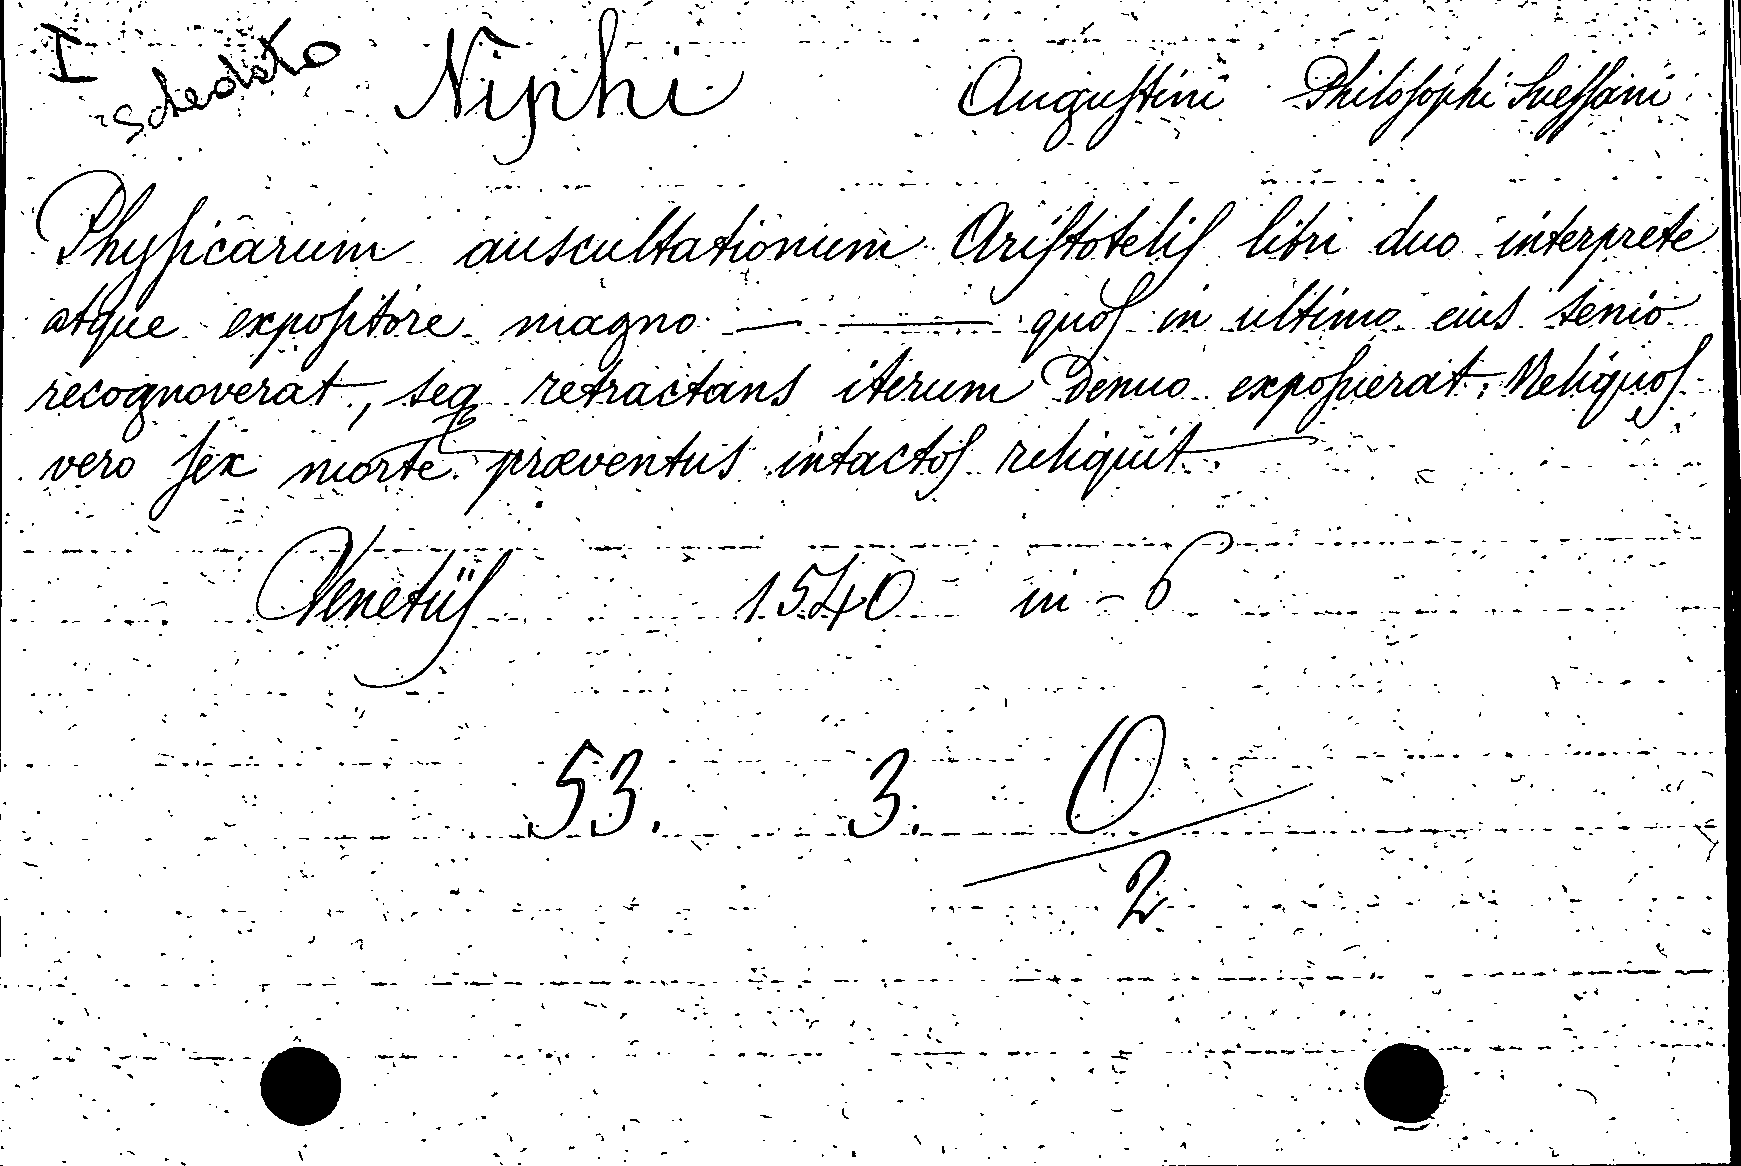 I schedato Niphi Augustini Philosophi Suessani
Physicarum auscultationum Aristotelis libri duo interprete
atque expositore magno — — quos in ultimo eius senio
recognoverat, seq retractans iterum denuo exposuerat. Reliquos
vero sex morte præventus intactos reliquit.
Venetiis 1540 in-6
53. 3. O/2